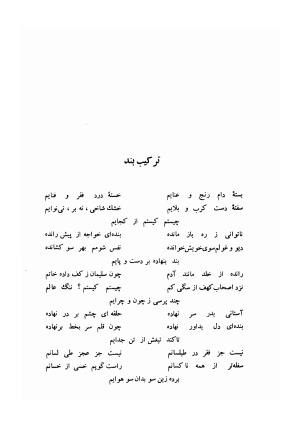 ترکیب بند
بستهٔ دام رنج و عنایم خستهٔ درد فقر و فنایم
سفتهٔ دست کرب و بلایم خشک شاخی، نه بر، نی نوایم
چیستم کیستم از کجایم
ناتوانی ز ره باز مانده بنده‌ای خواجه از پیش رانده
دیو و غولم سوی خویش خوانده نفس شومم بهر سو کشانده
بند بنهاده بر دست و پایم
رانده از خلد مانند آدم چون سلیمان ز کف داده خاتم
نزد اصحاب کهف از سگی کم چیستم کیستم؟ ننگ عالم
چند پرسی ز چون و چرایم
آستانی بدر سر نهاده حلقه‌ای چشم بر در نهاده
بنده‌ای دل بداور نهاده چون قلم سر بخط برنهاده
تاکند تیغش از تن جدایم
نیست جز فقر در طیلسانم نیست جز عجز طی لسانم
سفله‌تر از همه ناکسانم راست گویم خسی از خسانم
برده زین سو بدان سو هوایم